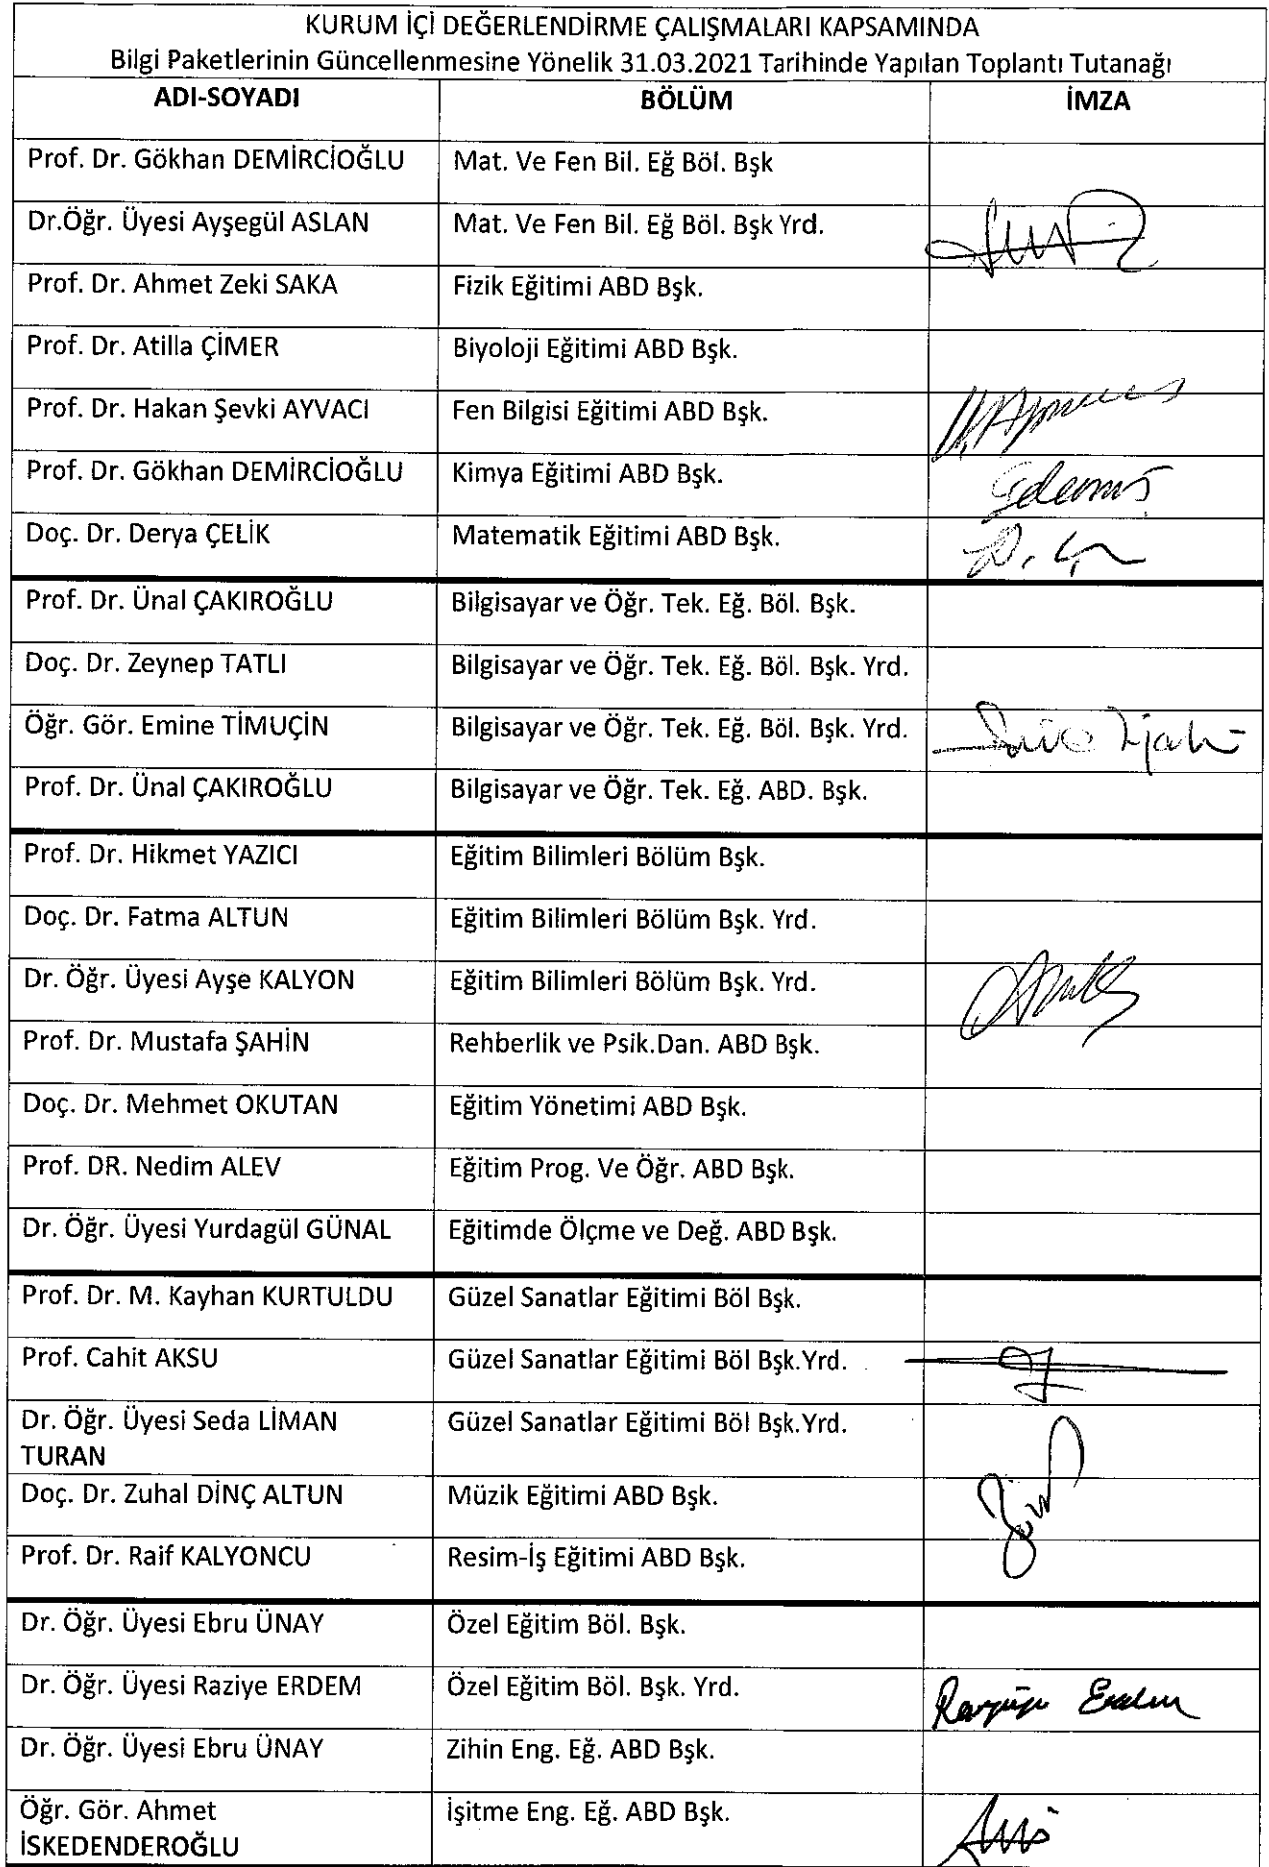 KURUM İÇİ DEĞERLENDİRME ÇALIŞMALARI KAPSAMINDA
Bilgi Paketlerinin Güncellenmesine Yönelik 31.03.2021 Tarihinde Yapılan Toplantı Tutanağı
ADI-SOYADI BÖLÜM İMZA
Prof. Dr. Gökhan DEMİRCİOĞLU Mat. Ve Fen Bil. Eğ Böl. Bşk
Dr.Öğr. Üyesi Ayşegül ASLAN Mat. Ve Fen Bil. Eğ Böl. Bşk Yrd.
Prof. Dr. Ahmet Zeki SAKA Fizik Eğitimi ABD Bşk.
Prof. Dr. Atilla ÇİMER Biyoloji Eğitimi ABD Bşk.
Prof. Dr. Hakan Şevki AYVACI Fen Bilgisi Eğitimi ABD Bşk.
Prof. Dr. Gökhan DEMİRCİOĞLU Kimya Eğitimi ABD Bşk.
Doç. Dr. Derya ÇELİK Matematik Eğitimi ABD Bşk.
Prof. Dr. Ünal ÇAKIROĞLU Bilgisayar ve Öğr. Tek. Eğ. Böl. Bşk.
Doç. Dr. Zeynep TATLI Bilgisayar ve Öğr. Tek. Eğ. Böl. Bşk. Yrd.
Öğr. Gör. Emine TİMUÇİN Bilgisayar ve Öğr. Tek. Eğ. Böl. Bşk. Yrd.
Prof. Dr. Ünal ÇAKIROĞLU Bilgisayar ve Öğr. Tek. Eğ. ABD. Bşk.
Prof. Dr. Hikmet YAZICI Eğitim Bilimleri Bölüm Bşk.
Doç. Dr. Fatma ALTUN Eğitim Bilimleri Bölüm Bşk. Yrd.
Dr. Öğr. Üyesi Ayşe KALYON Eğitim Bilimleri Bölüm Bşk. Yrd.
Prof. Dr. Mustafa ŞAHİN Rehberlik ve Psik.Dan. ABD Bşk.
Doç. Dr. Mehmet OKUTAN Eğitim Yönetimi ABD Bşk.
Prof. DR. Nedim ALEV Eğitim Prog. Ve Öğr. ABD Bşk.
Dr. Öğr. Üyesi Yurdagül GÜNAL Eğitimde Ölçme ve Değ. ABD Bşk.
Prof. Dr. M. Kayhan KURTULDU Güzel Sanatlar Eğitimi Böl Bşk.
Prof. Cahit AKSU Güzel Sanatlar Eğitimi Böl Bşk.Yrd.
Dr. Öğr. Üyesi Seda LİMAN Güzel Sanatlar Eğitimi Böl Bşk.Yrd.
TURAN
Doç. Dr. Zuhal DİNÇ ALTUN Müzik Eğitimi ABD Bşk.
Prof. Dr. Raif KALYONCU Resim-İş Eğitimi ABD Bşk.
Dr. Öğr. Üyesi Ebru ÜNAY Özel Eğitim Böl. Bşk.
Dr. Öğr. Üyesi Raziye ERDEM Özel Eğitim Böl. Bşk. Yrd. Raziye Erdem
Dr. Öğr. Üyesi Ebru ÜNAY Zihin Eng. Eğ. ABD Bşk.
Öğr. Gör. Ahmet İşitme Eng. Eğ. ABD Bşk.
İSKEDENDEROĞLU